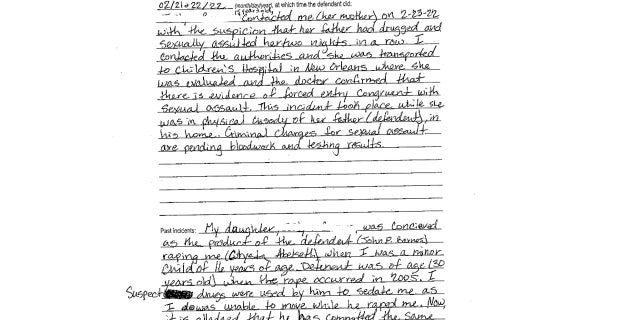 02/21+22/22 (month/day/year), at which time the defendant did:
Contacted me (her mother) on 2-23-22
with the suspicion that her father had drugged and
sexually assulted her two nights in a row. I
contacted the authorities and she was transported
to Children's Hospital in New Orleans where she
was evaluated and the doctor confirmed that
there is evidence of forced entry congruent with
sexual assault. This incident took place while she
was in physical cusody of her father (defendant), in
his home. Criminal charges for sexual assault
are pending bloodwork and testing results.
Past Incidents: My daughter, was concieved
as the product of the defendant (John P. Barnes)
raping me (Crysta Abelseth) when I was a minor
child of 16 years of age. Defendent was of age (30
years old) when the rape occurred in 2005. I
Suspect drugs were used by him to sedate me as
I was unable to move while he raped me. Now,
it is alledged that he has committed the same